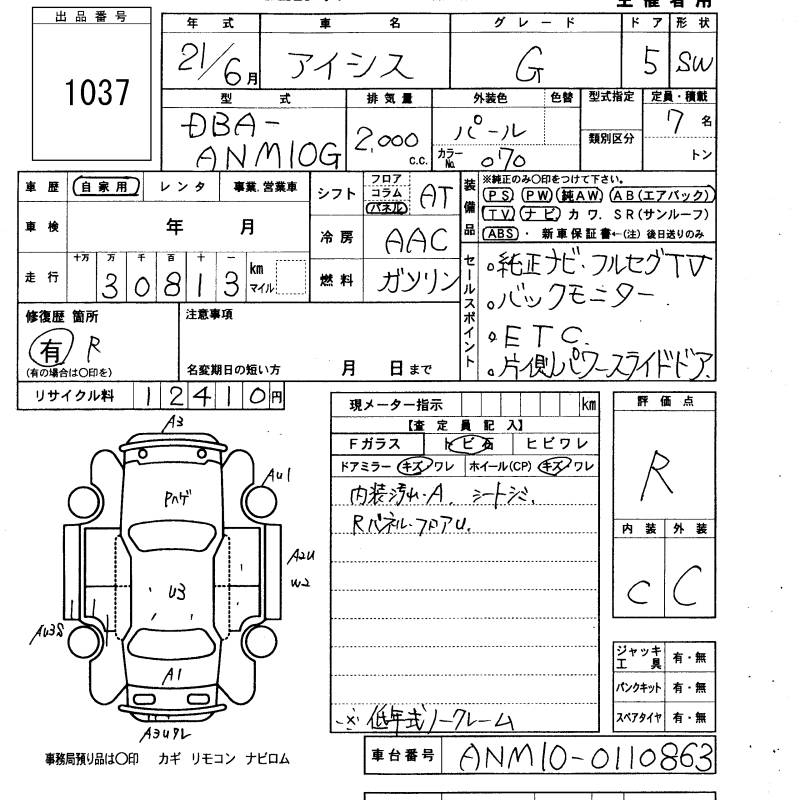 出品番号
1037
年式 車名 グレード ドア 形状
21/6月 アイシス G 5 SW
型式 排気量 外装色 色替 型式指定 定員・積載
DBA-ANM10G 2,000 c.c. パール カラーNo. 070 類別区分 7名 トン
車歴 自家用 レンタ 事業.営業車 シフト フロア コラム パネル AT
車検 年 月 冷房 AAC
走行 十万 万 千 百 十 一 30813 km マイル 燃料 ガソリン
装備品 ※純正のみ〇印をつけて下さい。
PS PW 純AW AB(エアバック)
TV ナビ カワ. SR(サンルーフ)
ABS ・ 新車保証書←(注) 後日送りのみ
セールスポイント
。純正ナビ・フルセグTV
。バックモニター
。ETC.
。片側パワースライドドア.
修復歴 箇所 注意事項
有 R
(有の場合は〇印を) 名変期日の短い方 月 日まで
リサイクル料 12410円
現メーター指示 km
【査定員記入】
Fガラス トビ石 ヒビワレ
ドアミラー キズ ワレ ホイール(CP) キズ ワレ
内装汚れ・A. シートシミ.
Rパネル・フロアU.
※ 低年式ノークレーム
評価点
R
内装 外装
C C
A3
Pハゲ
AU1
A2U
W2
U3
AU3S
A1
ジャッキ工具 有・無
パンクキット 有・無
スペアタイヤ 有・無
車台番号 ANM10-0110863
事務局預り品は〇印 カギ リモコン ナビロム